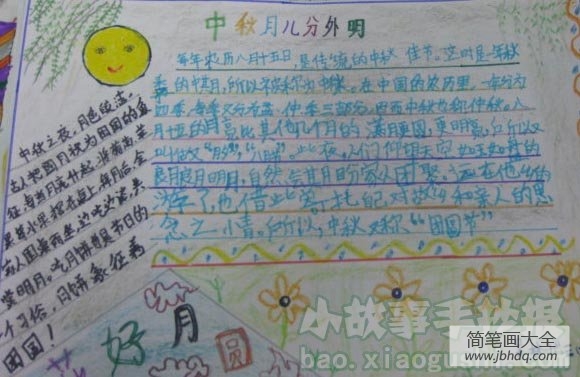 中秋月儿分外明
每年农历八月十五日,是传统的中秋佳节。这时是一年秋
季的中期,所以被称为中秋。在中国的农历里,一年分为
四季,每季又分为孟、仲、季三部分,因而中秋也称仲秋。八
月十五的月亮比其他几个月的满月更圆,更明亮,所以又
叫做“月夕”,“八月节”。此夜,人们仰望天空如玉如盘的
朗朗明月,自然会期盼家人团聚。远在他乡的
游子,也借此寄托自己对故乡和亲人的思
念之情。所以,中秋又称“团圆节”
中秋之夜,月色皎洁,
古人把圆月视为团圆的象
征
一个习俗,月饼象征着
团圆!
花好月圆
小故事手抄报
bao.xiaogushi.com
简笔画大全
www.jbhdq.com